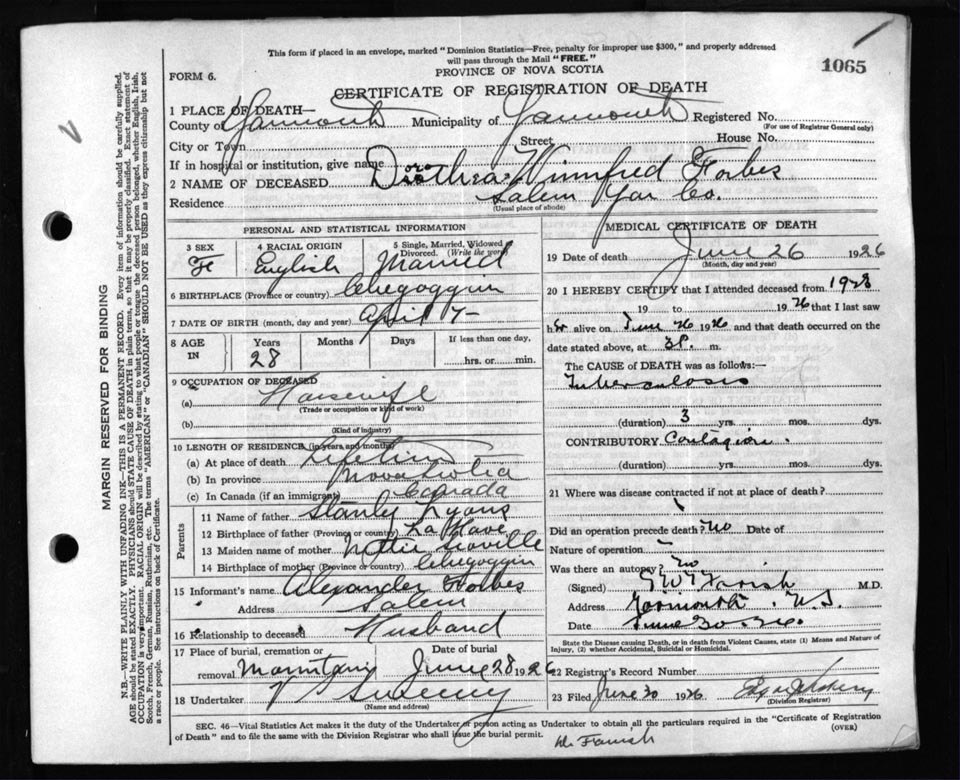 This form if placed in an envelope, marked "Dominion Statistics—Free, penalty for improper use $300," and properly addressed
will pass through the Mail "FREE."
PROVINCE OF NOVA SCOTIA
1065
FORM 6.
CERTIFICATE OF REGISTRATION OF DEATH
1 PLACE OF DEATH—
County of Yarmouth Municipality of Yarmouth Registered No.
(For use of Registrar General only)
City or Town Street House No.
If in hospital or institution, give name
2 NAME OF DECEASED Dorothea Winnifred Forbes
Residence Salem Yar Co.
(Usual place of abode)
PERSONAL AND STATISTICAL INFORMATION
3 SEX 4 RACIAL ORIGIN 5 Single, Married, Widowed
Divorced. (Write the word)
Fe English Married
6 BIRTHPLACE (Province or country) Chegoggin
7 DATE OF BIRTH (month, day and year) April 7-
8 AGE IN Years Months Days If less than one day,
28 hrs. or min.
9 OCCUPATION OF DECEASED
(a) Housewife
(Trade or occupation or kind of work)
(b)
(Kind of industry)
10 LENGTH OF RESIDENCE (in years and months)
(a) At place of death Lifetime
(b) In province Nova Scotia
(c) In Canada (if an immigrant) Canada
Parents
11 Name of father Stanly Lyons
12 Birthplace of father (Province or country) La Have
13 Maiden name of mother
14 Birthplace of mother (Province or country) Chegoggin
15 Informant's name Alexander Forbes
Address Salem
16 Relationship to deceased Husband
17 Place of burial, cremation or Date of burial
removal June 28 1926
18 Undertaker V Sweeny
(Name and address)
MEDICAL CERTIFICATE OF DEATH
19 Date of death June 26 1926
(Month, day and year)
20 I HEREBY CERTIFY that I attended deceased from
19 to 1926 that I last saw
her alive on June 26 1926 and that death occurred on the
date stated above, at 3 P. m.
The CAUSE of DEATH was as follows:
Tuberculosis
(duration) 3 yrs. mos. dys.
CONTRIBUTORY Contagion.
(duration) yrs. mos. dys.
21 Where was disease contracted if not at place of death?
Did an operation precede death? no Date of
Nature of operation —
Was there an autopsy? no
(Signed) Farish M.D.
Address Yarmouth N.S.
Date June 30.26.
State the Disease causing Death, or in death from Violent Causes, state (1) Means and Nature of
Injury, (2) whether Accidental, Suicidal or Homicidal.
22 Registrar's Record Number
23 Filed June 30 1926
(Division Registrar)
SEC. 46—Vital Statistics Act makes it the duty of the Undertaker or person acting as Undertaker to obtain all the particulars required in the "Certificate of Registration
of Death" and to file the same with the Division Registrar who shall issue the burial permit.
(OVER)
Dr. Farish
MARGIN RESERVED FOR BINDING
N.B.—WRITE PLAINLY WITH UNFADING INK—THIS IS A PERMANENT RECORD. Every item of information should be carefully supplied.
AGE should be stated EXACTLY. PHYSICIANS should STATE CAUSE OF DEATH in plain terms, so that it may be properly classified. Exact statement of
OCCUPATION is very important. RACIAL ORIGIN will be described by stating to what people or tongue the deceased person belonged, whether English, Irish,
Scotch, French, German, Russian, Ruthenian, etc. The terms "AMERICAN" or "CANADIAN" SHOULD NOT BE USED as they express citizenship but not
a race or people. See instructions on back of Certificate.